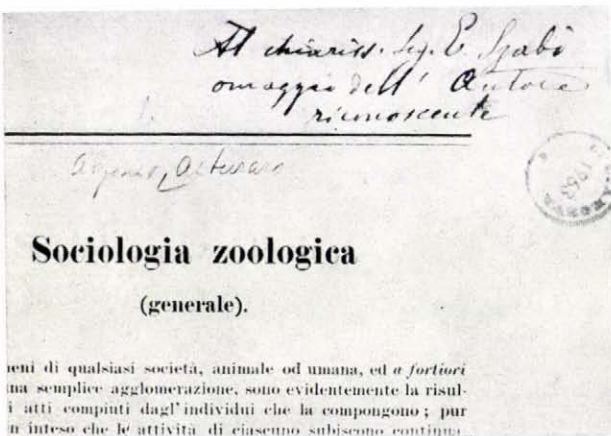 Al chiariss. Sig. E. Szabò
omaggio dell' Autore
riconoscente
1963
Sociologia zoologica
(generale).
neni di qualsiasi società, animale od umana, ed a fortiori
una semplice agglomerazione, sono evidentemente la risul-
i atti compiuti dagl' individui che la compongono ; pur
n inteso che le attività di ciascuno subiscono continua-